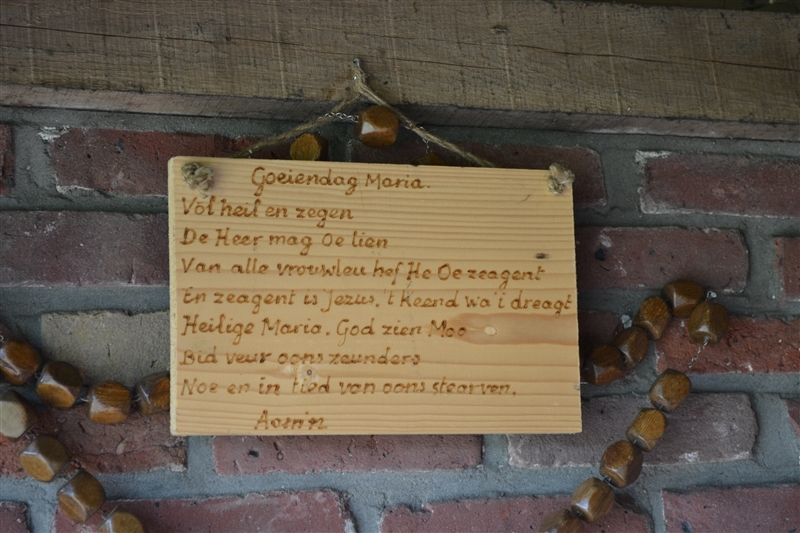 Goeiendag Maria.
Völ heil en zegen
De Heer mag Oe lien
Van alle vrouwleu hef He Oe zeagent
En zeagent is Jezus, 't keend wa'i dreagt
Heilige Maria, God zien Moo
Bid veur oons zeunders
Noe en in tied van oons stearven.
Aomin